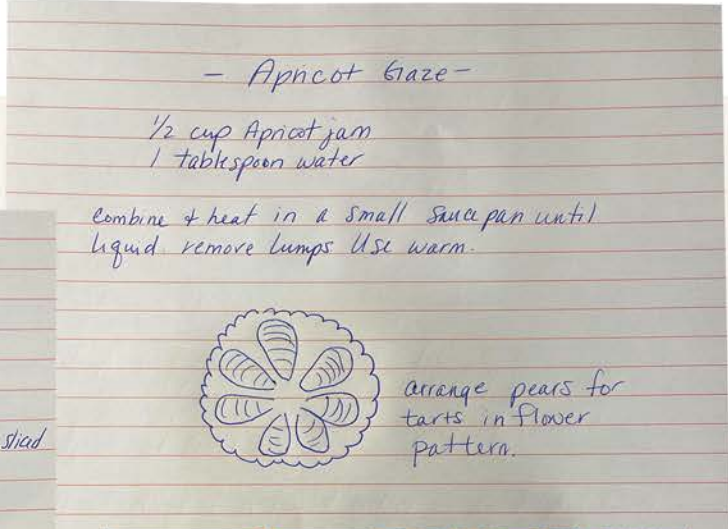 - Apricot Glaze -
1/2 cup Apricot jam
1 tablespoon water
Combine & heat in a small sauce pan until
liquid. remove lumps Use warm.
arrange pears for
tarts in flower
pattern.
sliced